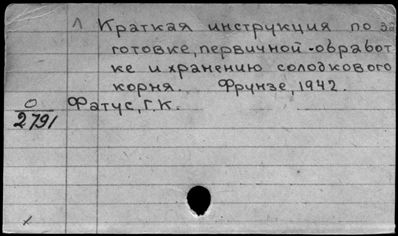 Л Краткая инструкция по за
готовке, первичной обработ
ке и хранению солодкового
корня. Фрунзе, 1942.
О
2791
Фатус, Г.К.